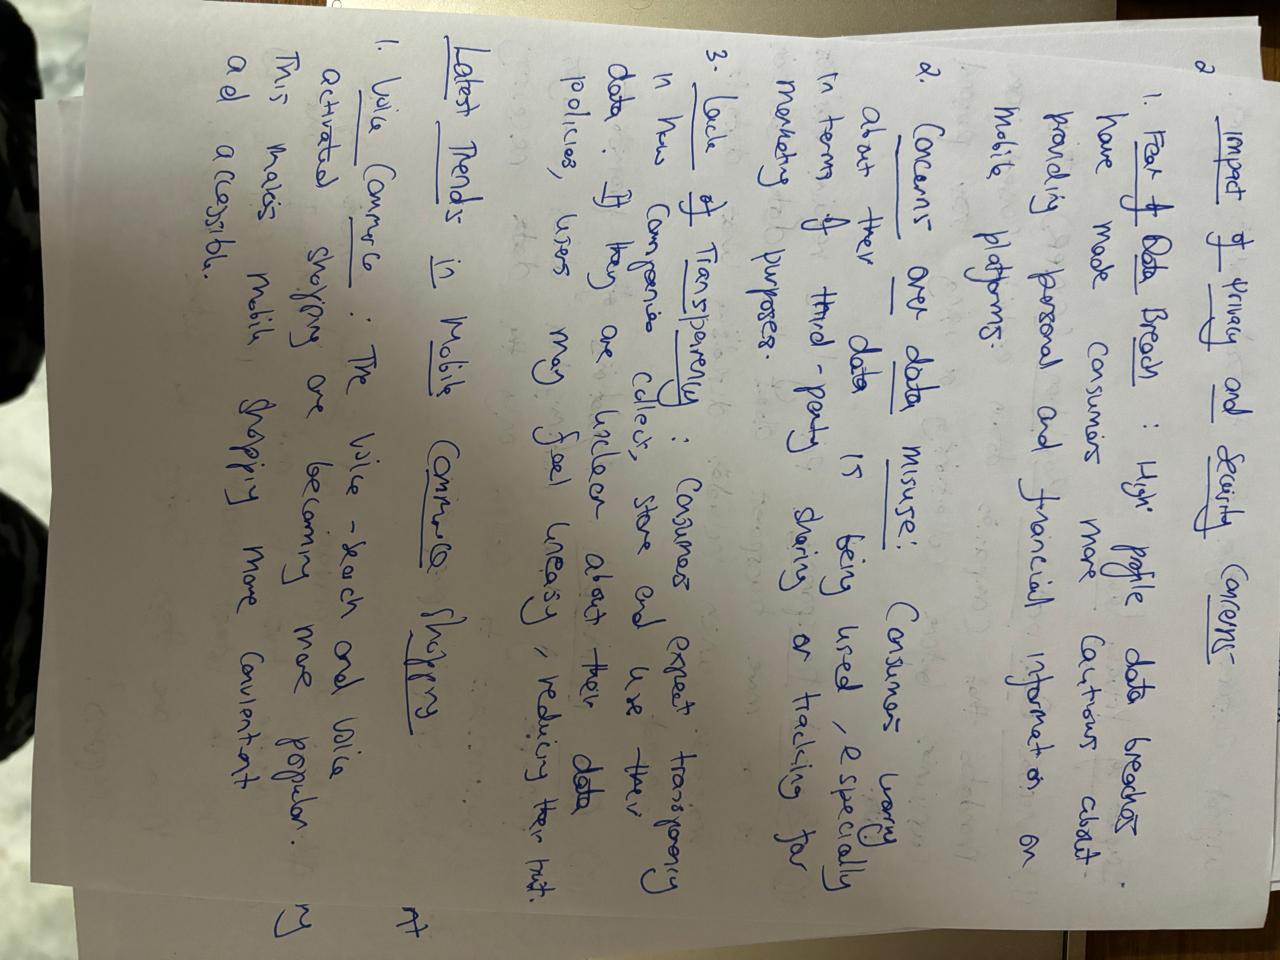 Impact of Privacy and Security Concerns
2
1. Fear of Data Breach : High profile data breaches
have made consumers more cautious about
providing personal and financial information on
mobile platforms.
2. Concerns over data misuse: Consumers worry
about ther data is being used, especially
in terms of third-party sharing or tracking for
marketing purposes.
3. Lack of Transparency : Consumers expect transparency
in how companies collect, store and use their
data. If they are unclear about their data
policies, users may feel uneasy, reducing their trust.
Latest Trends in Mobile Commerce Shopping
nt
1. Voice Commerce : The voice-search and voice
activated shopping are becoming more popular.
ny
This makes mobile shopping more convientent
ad accessible.